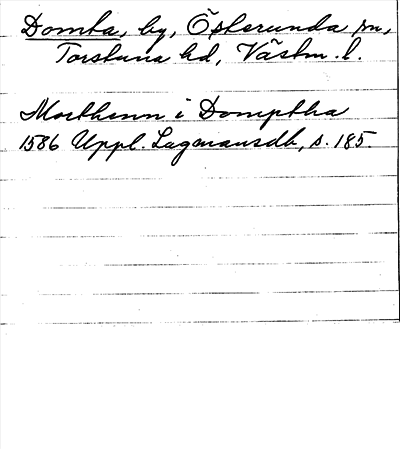 Domta, by, Österunda sn,
Torstuna hd, Västm. l.
Morthenn i Domptha
1586 Uppl. Lagmansdb, s. 185.